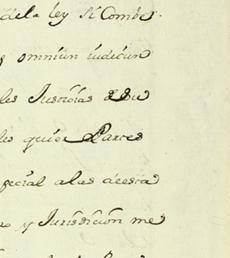 dela ley si Combe
omniun iudicun
les Justicias de su
les quier Partes
pecial a las de esta
y Jurisdicion me